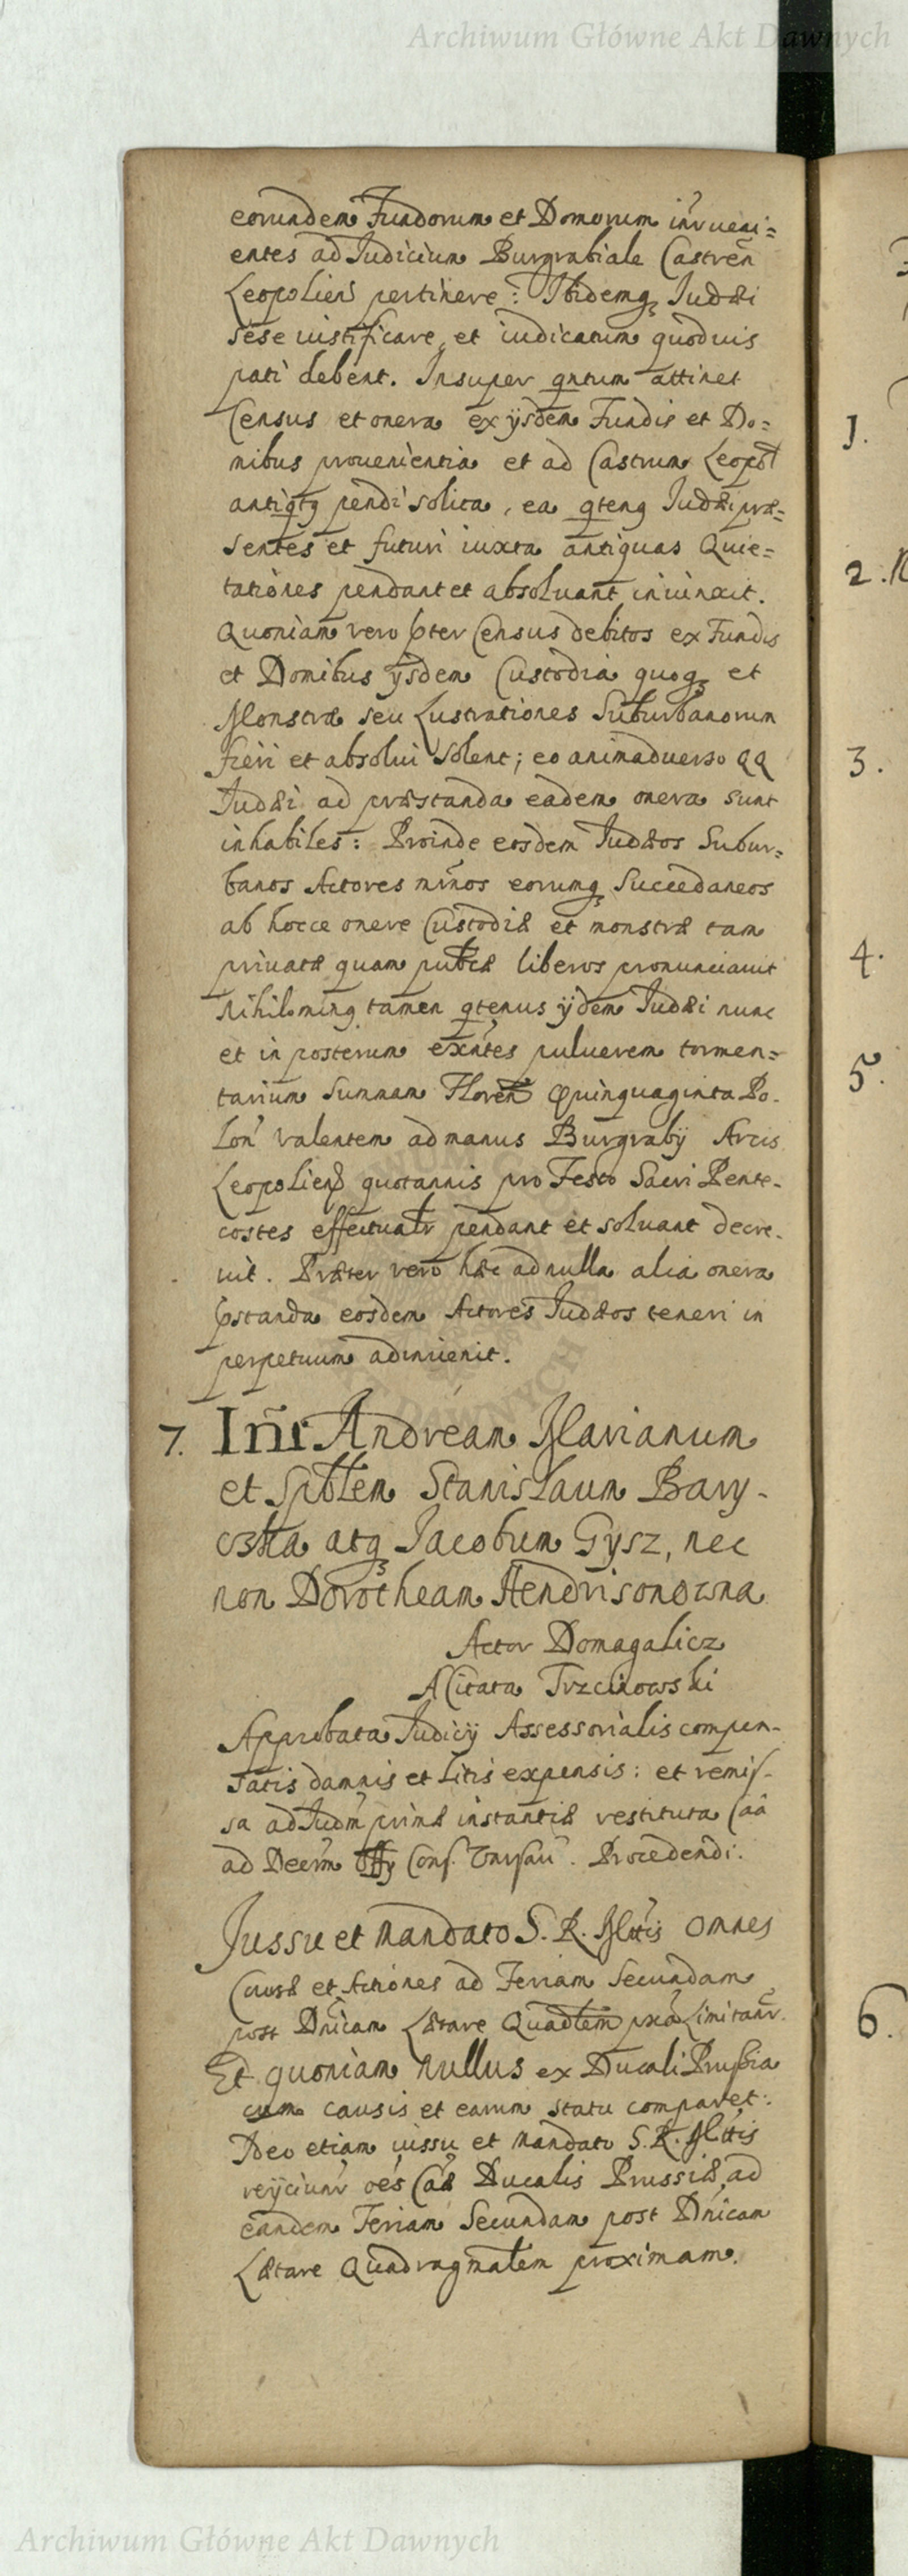 Archiwum Główne Akt Dawnych
eorundem Fundorum et Domorum invueni=
entes ad Judicium Burgrabiale Castreñ
Leopolieñ pertinere: Ibidemq Judæi
sese iustificare, et iudicatum quoduis
pati debent. Insuper qntum attinet
Census et onera ex ijsdem Fundis et Do=
mibus prouenientia et ad Castrum Leopol
antiqtq pendi solita, ea qtenq Judæi præ=
sentes et futuri iuxta antiquas Quie=
tationes pendant et absoluant iniunxit.
Quoniam vero pter Census debitos ex Fundis
et Domibus ijsdem Custodia quoq et
Monstræ seu Lustrationes Suburbanorum
fieri et absolui solent; eo animaduerso qq
Judæi ad præstanda eadem onera sunt
inhabiles: Proinde eosdem Judæos Subur=
banos Actores minos eorumq Succedaneos
ab hocce onere Custodiæ et monstræ tam
priuatæ quam publcæ liberos pronunciauit
Nihilominq tamen qtenus ijdem Judæi nunc
et in posterum exntes puluerem tormen=
tarium Summam Floreñ Quinquaginta Po-
lon valentem ad manus Burgrabij Arcis
Leopolieñ quotannis pro Festo Sacri Pente-
costes effectualr pendant et soluant decre-
uit. Præter vero hæc ad nulla alia onera
pstanda eosdem Actores Judæos teneri in
perpetuum adinuenit.
7. Inr Andream Marianum
et Spblem Stanislaum Bary-
czka atq Jacobum Gysz, nec
non Dorotheam Hendrisonowna
Actor Domagalicz
A Citata Trzcinowski
Approbata Judicij Assessorialis compen-
satis damnis et litis expensis: et remis-
sa ad Judm primæ instantiæ restituta Caâ
ad Decrm Offij Cons. Procedendi.
Jussu et Mandato S. R. Mttis omnes
Causæ et Actiones ad Feriam Secundam
post Dnicam Lætare Quadlem pxa Limitanr.
Et quoniam nullus ex Ducali Prussia
cum causis et earum statu comparet:
Ideo etiam iussu et Mandato S. R. Mttis
reijciunr oes Caæ Ducalis Prussiæ ad
eandem Feriam Secundam post Dnicam
Lætare Quadragmalem proximam.
1.
2. N
3.
4.
5.
6.
Archiwum Główne Akt Dawnych